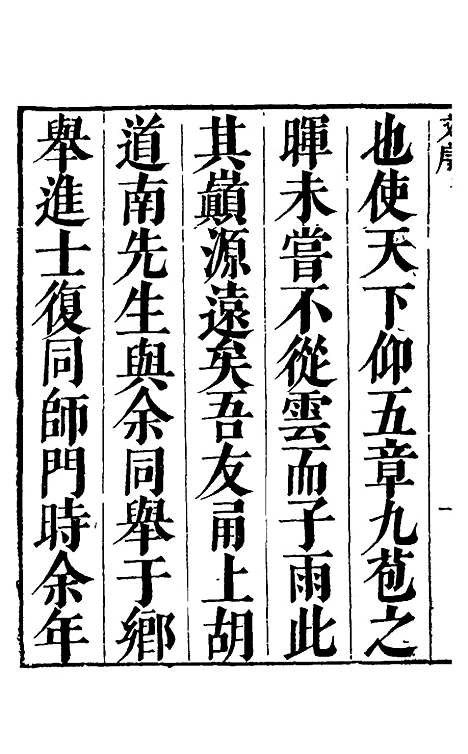 也使天下仰五章九苞之
暉未嘗不從雲而子雨此
其巔源遠矣吾友甬上胡
道南先生與余同舉于鄉
舉進士復同師門時余年